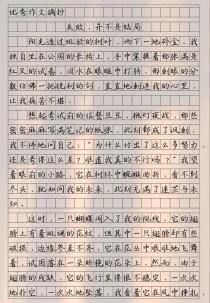 优秀作文摘抄
失败,并不是结局
阳光透过斑驳的树叶,洒下一地碎金。我
独自坐在公园的长椅上,手中紧握着那张满是
红叉的试卷,泪水在眼眶中打转,那刺眼的分
数仿佛一把锐利的剑,直直地刺进我的心里,
让我痛苦不堪。
想起考试前的信誓旦旦,挑灯夜战,那些
密密麻麻写满笔记的纸张,此刻都成了讽刺。
我不停地问自己:“为什么付出了这么多努力,
还是考得这么差?难道我真的不行吗?”我望
着眼前的小路,它在树林中蜿蜒曲折,看不到
尽头,就如同我的未来,此刻充满了迷茫与未
知。
这时,一只蝴蝶闯入了我的视线,它的翅
膀上有着斑斓的花纹,但其中一只翅膀却有些
破损,边缘参差不齐。它在花丛中艰难地飞舞
着,试图落在一朵娇艳的花朵上。然而,由于
翅膀的残缺,它的飞行显得很不稳定,一次次
地扑空,一次次地坠落。我看着它在风中挣扎,